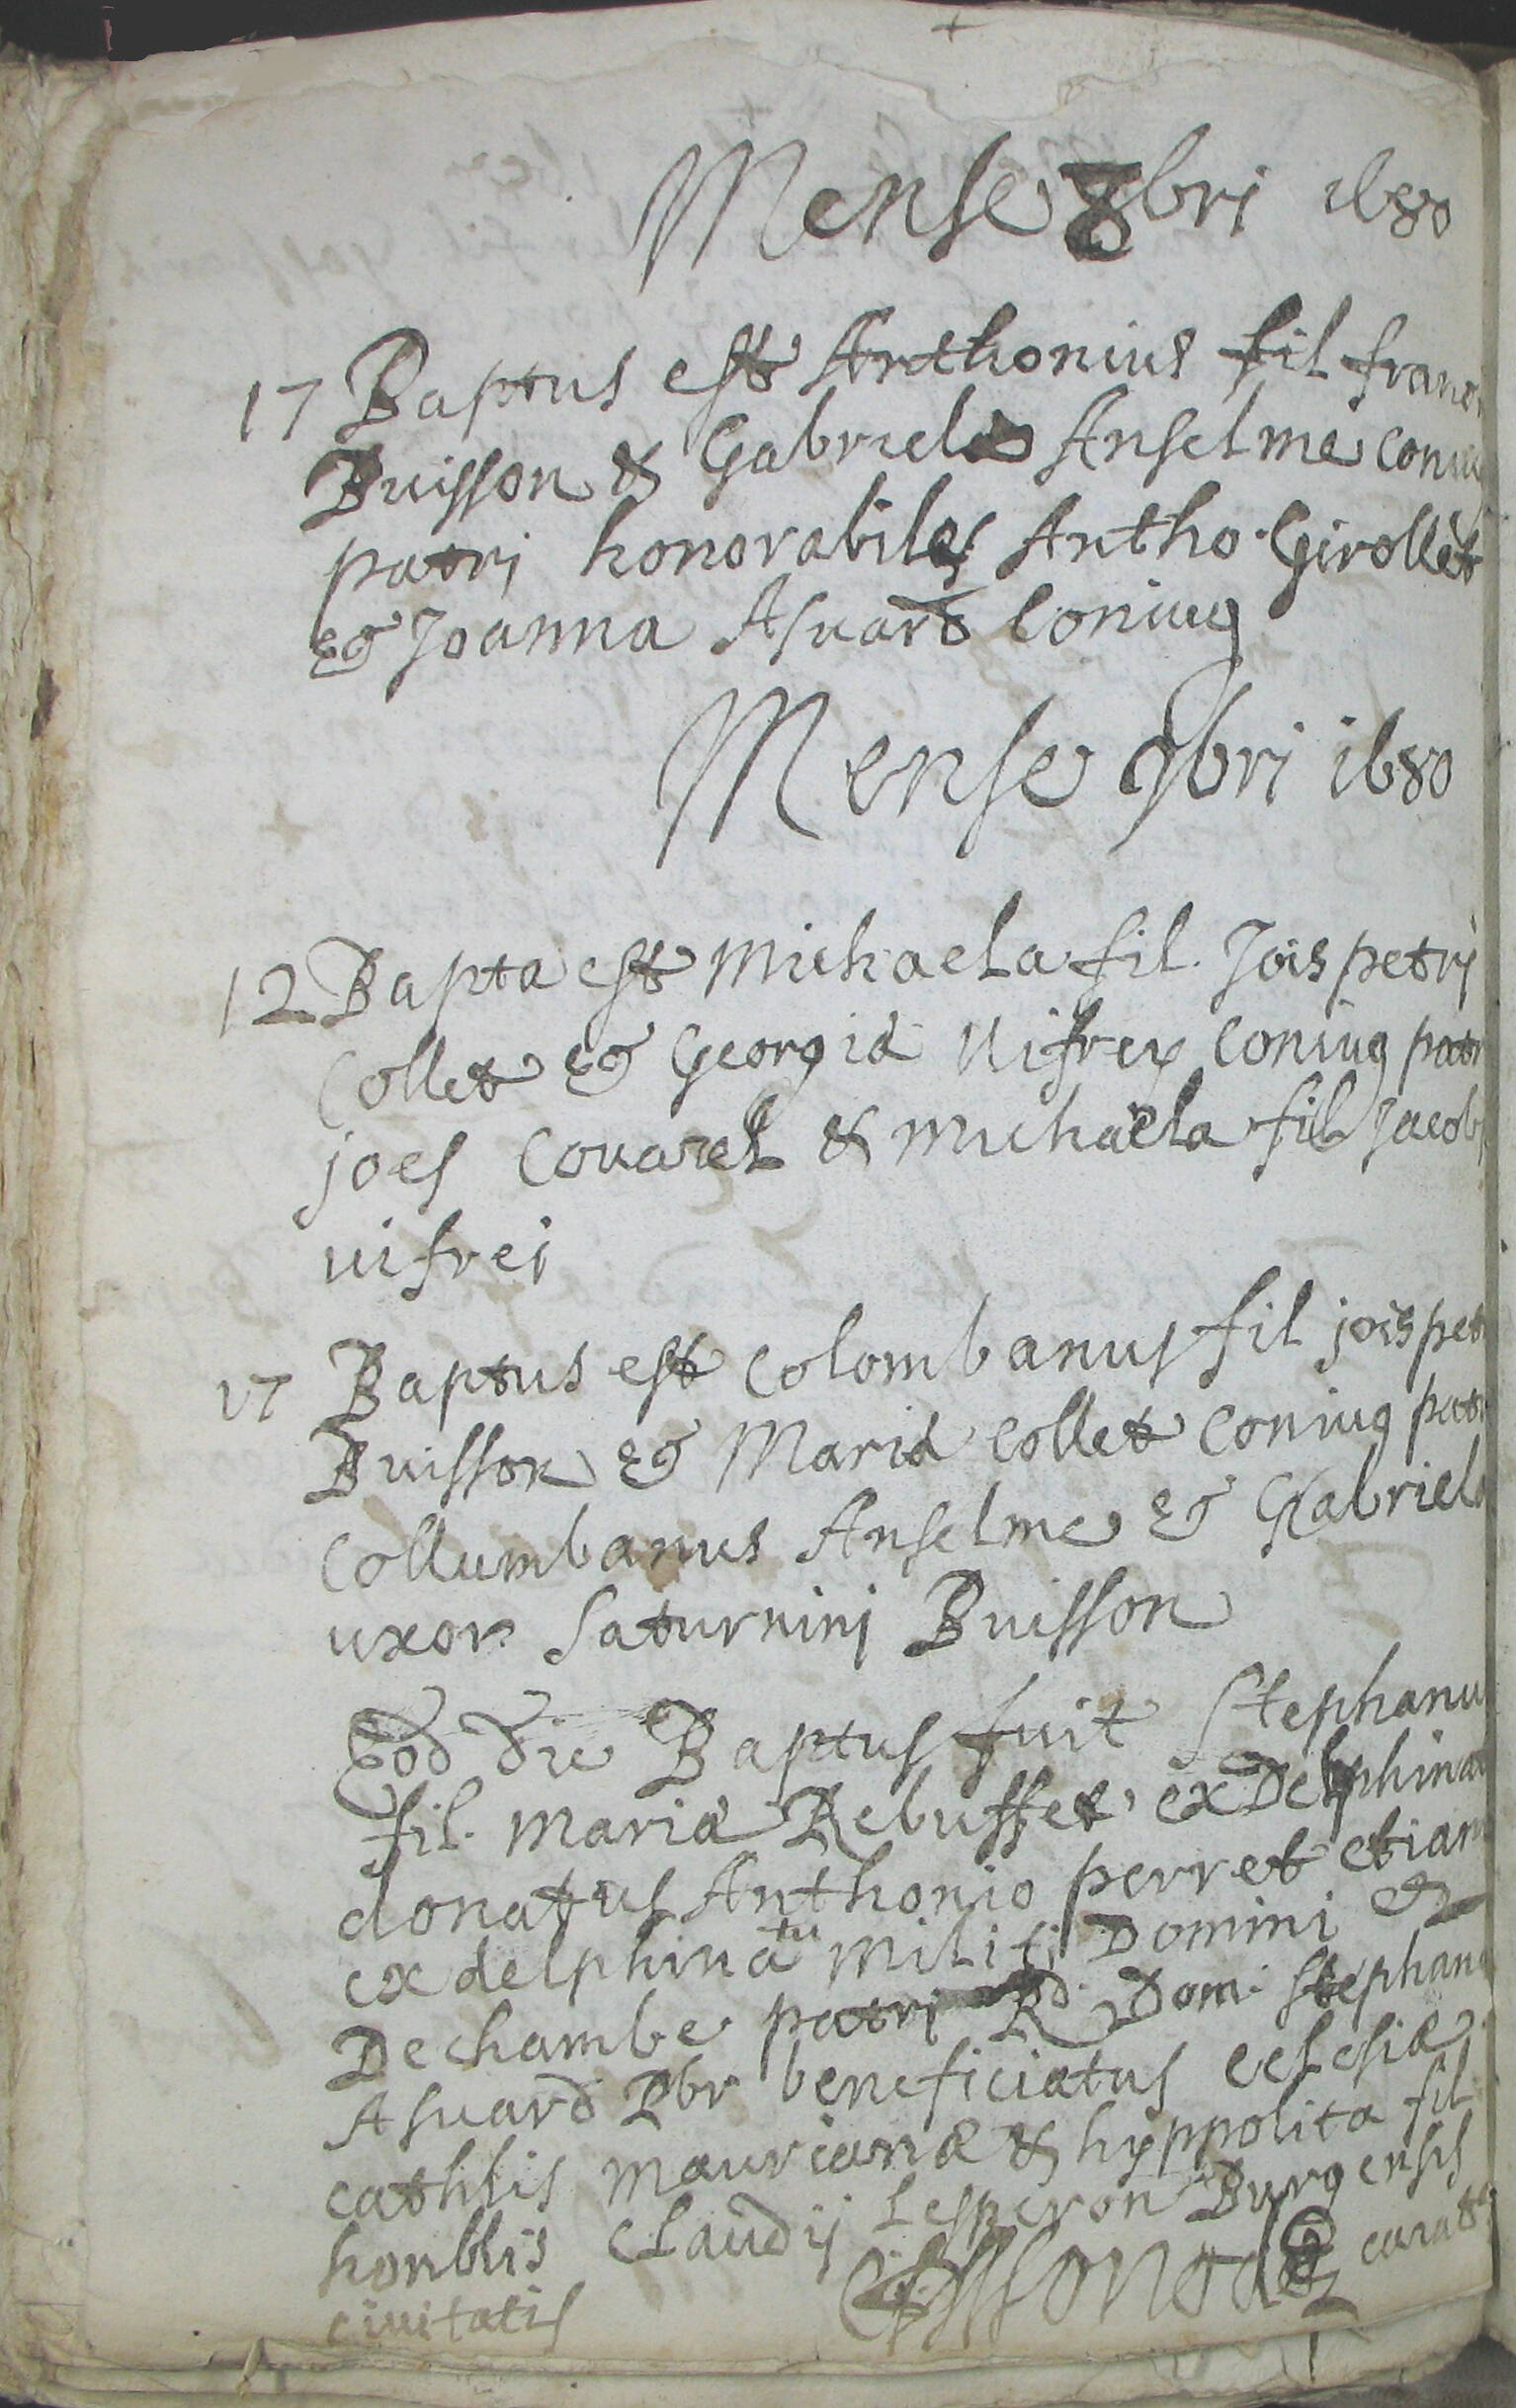 Mense 8bri 1680
17 Baptus est Anthonius fil franc
Buisson & Gabriela Anselme coniu
patri honorabiles Antho. Girollet
et Joanna Asuard Coniug
Mense 9bri 1680
12 Bapta est Michaela fil. Jois petri
Collet et Georgia Uifrey Coniug patr
joes Couarel & Michaela fil Jacob
uifrei
17 Baptus est Colombanus fil jois pet
Buisson et Maria Collet Coniug patr
Collumbanus Anselme et Gabriela
uxor Saturnini Buisson
Eod die Baptus fuit Stephanu
fil. Maria Rebuffet ex Delphina
donatus Anthonio perret etiam
ex delphinatu militi Domini
De chambe patri Rd. Dom. Stephan
Asuard Pbr beneficiatus eclesiæ
cathlis Maurianæ & hyppolita fil
honblis Claudij Lesperon Burgensis
civitatis curat